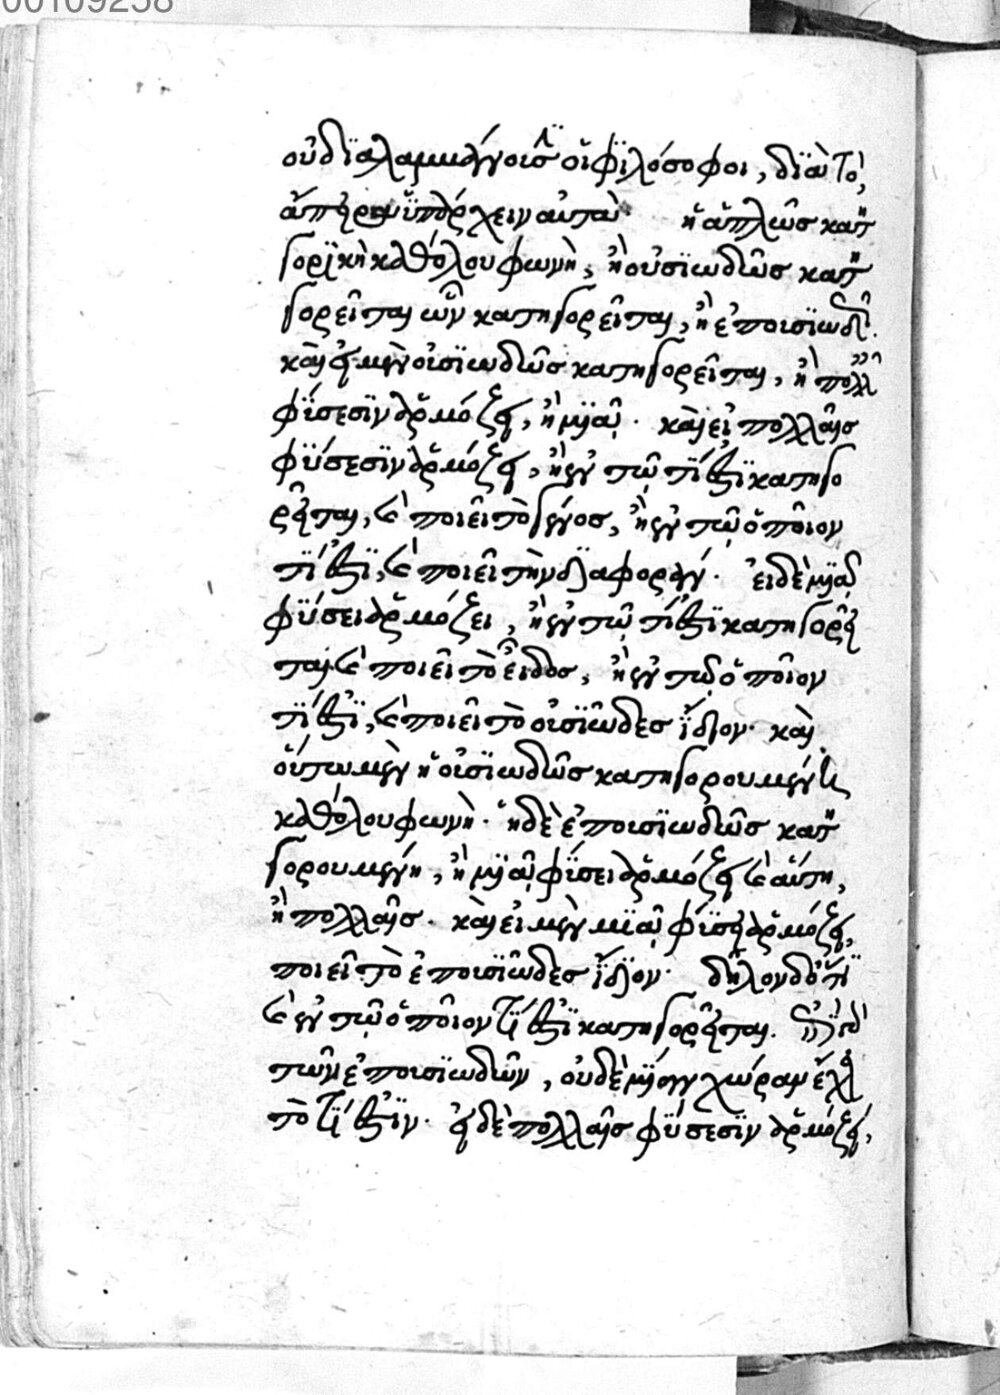 00109258
οὐ διαλαμβάνουσιν οἱ φϊλόσοφοι, διὰ τὸ,
ἄπειρα ὑπάρχειν αὐτά· ἡ ἁπλῶς κατη
γορϊκὴ καθόλου φωνὴ, ἢ οὐσϊωδῶς κατη
γορεῖται ὧν κατηγορεῖται, ἢ ἐποισϊωδῶς·
καὶ εἰ μὲν οὐσϊωδῶς κατηγορεῖται, ἢ πολλαῖς
φύσεσϊν ἁρμόζει, ἢ μϊᾷ· καὶ εἰ πολλαῖς
φύσεσϊν ἁρμόζει, ἢ ἐν τῷ τί ἐστϊ κατηγο
ρεῖται, καὶ ποιεῖ τὸ γένος, ἢ ἐν τῷ ὁποῖον
τί ἐστϊ, καὶ ποιεῖ τὴν διαφοράν· εἰ δὲ μϊᾷ
φύσει ἁρμόζει, ἢ ἐν τῷ τί ἐστϊ κατηγορεῖ
ται καὶ ποιεῖ τὸ εἶδος, ἢ ἐν τῷ ὁποῖον
τί ἐστϊ, καὶ ποιεῖ τὸ οὐσϊῶδες ἴδιον· καὶ
οὕτω μὲν ἡ οὐσϊωδῶς κατηγορουμένη
καθόλου φωνὴ· ἡ δὲ ἐποισϊωδῶς κατη
γορουμένη, ἢ μϊᾷ φύσει ἁρμόζει καὶ αὕτη,
ἢ πολλαῖς· καὶ εἰ μὲν μϊᾷ φύσει ἁρμόζει,
ποιεῖ τὸ ἐποισϊῶδες ἴδϊον· δῆλον δὲ ὅτϊ
καὶ ἐν τῷ ὁποῖον τί ἐστϊ κατηγορεῖται.
τῶν ἐποισϊωδῶν, οὐδεμίαν χώραν ἔχει
τὸ τί ἐστϊν· εἰ δὲ πολλαῖς φύσεσϊν ἁρμόζει,